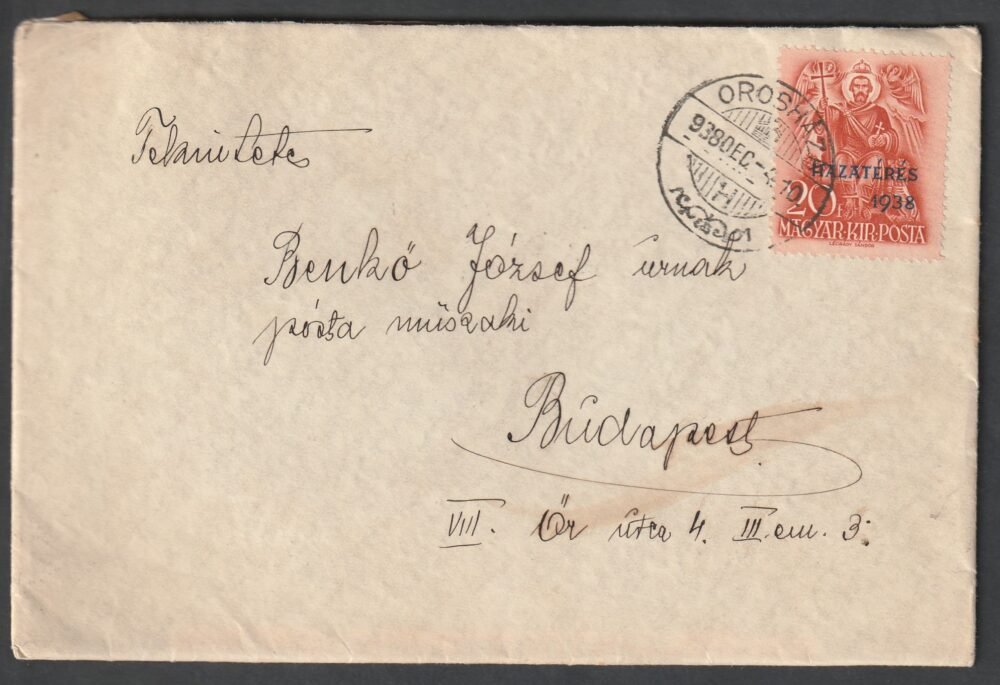 Tekintetes
Benkő József urnak
pósta műszaki
Budapest
VIII. Őr útca 4. III. em. 3.
OROSHÁZ
938DEC-4.10
HAZATÉRÉS
1938
20F
MAGYAR·KIR·POSTA
LÉGRÁDY SÁNDOR